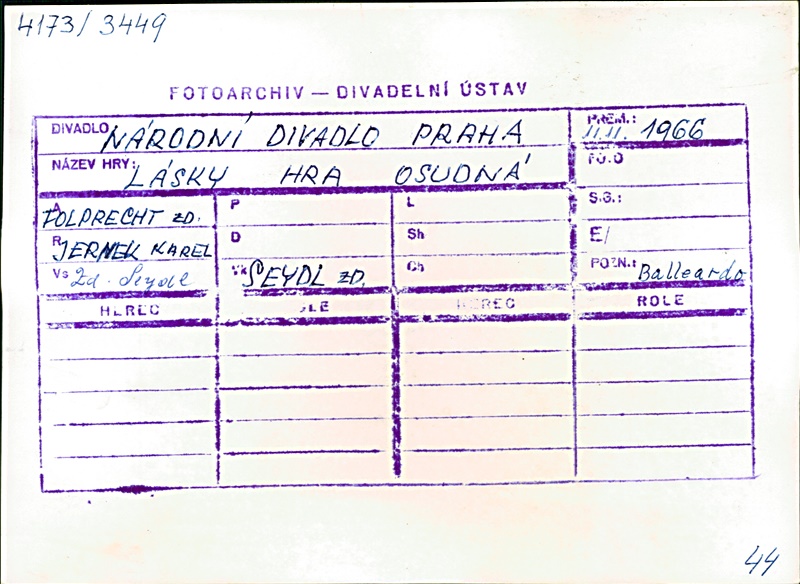 4173/3449
FOTOARCHIV — DIVADELNÍ ÚSTAV
DIVADLO NÁRODNÍ DIVADLO PRAHA PREM.: 11.11. 1966
NÁZEV HRY: LÁSKY HRA OSUDNÁ FOTO
A FOLPRECHT ZD. P L S.G.:
R JERNEK KAREL D Sh E/
Vs Zd. Seydl Vk SEYDL ZD. Ch POZN.: Balleardo
HEREC ROLE HEREC ROLE
44